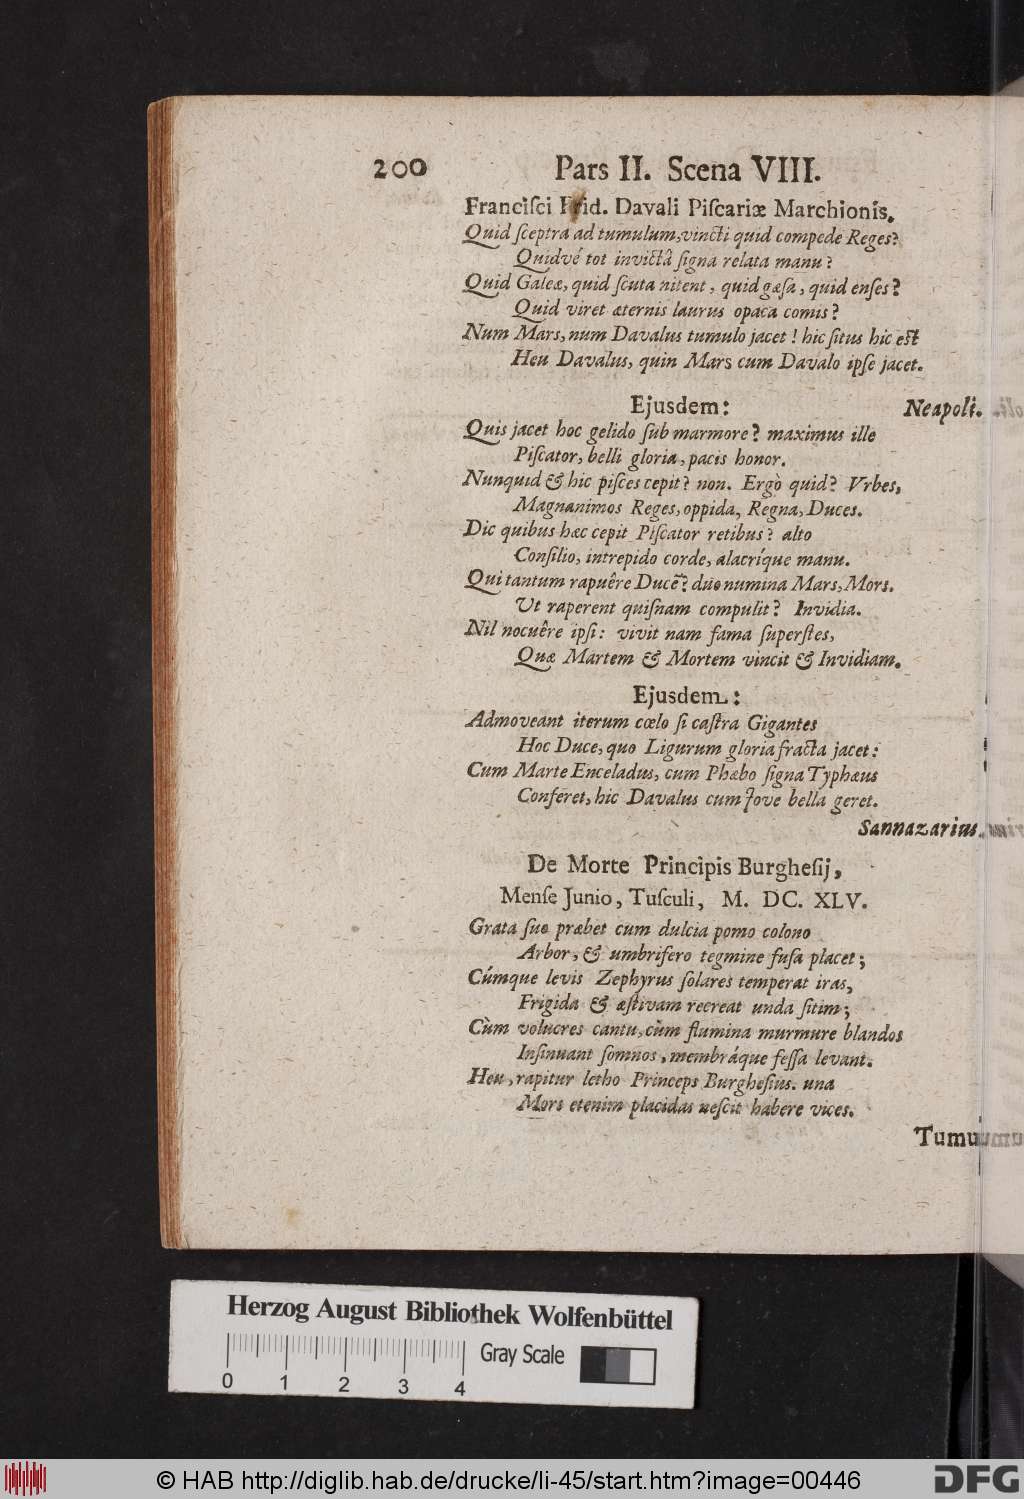 200 Pars II. Scena VIII.
Franciſci Frid. Davali Piſcariæ Marchionis.
Quid ſceptra ad tumulum, vincti quid compede Reges?
Quidvé tot invictâ ſigna relata manu?
Quid Galeæ, quid ſcuta nitent, quid gæſa, quid enſes?
Quid viret æternis laurus opaca comis?
Num Mars, num Davalus tumulo jacet! hic ſitus hic eſt
Heu Davalus, quin Mars cum Davalo ipſe jacet.
Ejusdem: Neapoli.
Quis jacet hoc gelido ſub marmore? maximus ille
Piſcator, belli gloria, pacis honor.
Nunquid & hic piſces cepit? non. Ergò quid? Vrbes,
Magnanimos Reges, oppida, Regna, Duces.
Dic quibus hæc cepit Piſcator retibus? alto
Conſilio, intrepido corde, alacríque manu.
Qui tantum rapuêre Ducẽ? duo numina Mars, Mors.
Ut raperent quiſnam compulit? Invidia.
Nil nocuêre ipſi: vivit nam fama ſuperſtes,
Quæ Martem & Mortem vincit & Invidiam.
Ejusdem:
Admoveant iterum cœlo ſi caſtra Gigantes
Hoc Duce, quo Ligurum gloria fracta jacet:
Cum Marte Enceladus, cum Phæbo ſigna Typhæus
Conferet, hic Davalus cum Jove bella geret.
Sannazarius.
De Morte Principis Burgheſij,
Menſe Junio, Tuſculi, M. DC. XLV.
Grata ſuo præbet cum dulcia pomo colono
Arbor, & umbrifero tegmine fuſa placet;
Cúmque levis Zephyrus ſolares temperat iras,
Frigida & æſtivam recreat unda ſitim;
Cùm volucres cantu, cùm flumina murmure blandos
Inſinuant ſomnos, membráque feſſa levant.
Heu, rapitur letho Princeps Burgheſius. una
Mors etenim placidas neſcit habere vices.
Tumu
Herzog August Bibliothek Wolfenbüttel
Gray Scale
0 1 2 3 4
© HAB http://diglib.hab.de/drucke/li-45/start.htm?image=00446
DFG